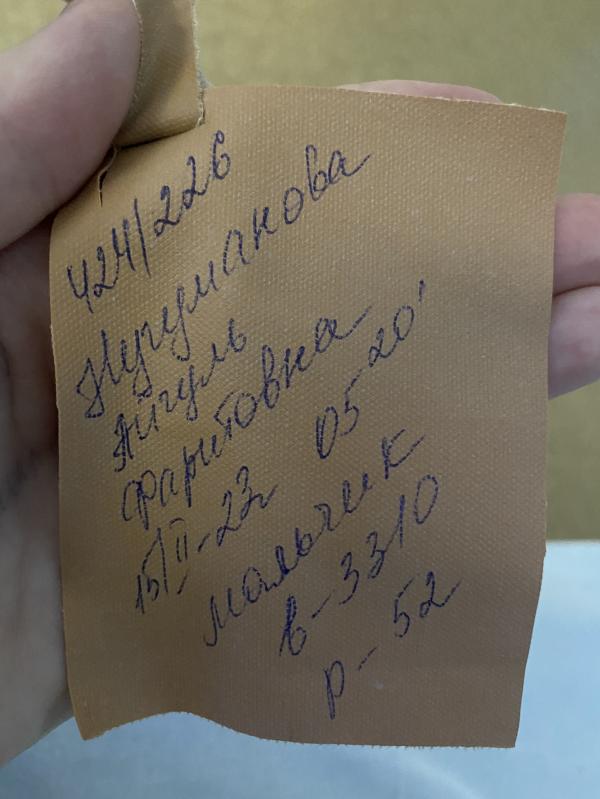 424/226
Нугуманова
Айгуль
Фаритовна
15/II-23г 05 20'
мальчик
в-3310
р-52